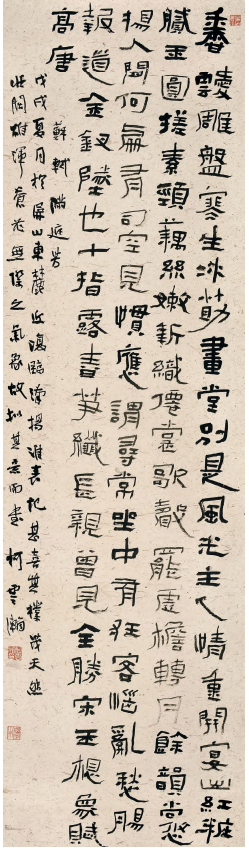 香靉雕盤寒生冰筯畫堂別是風光主人情重開宴出紅粧
膩玉圓搓素頸藕絲嫩新織僊裳歌聲罷虛檐轉月餘韻尚悠
揚人間何處有司空見慣應謂尋常坐中有狂客惱亂愁腸
報道金釵墜也十指露春笋纖長親曾見全勝宋玉想象賦
高唐
蘇軾滿庭芳
戊戌夏月於屏山東麓近臨楊淮表記甚喜其樸茂天然
此間雄渾蒼茫無際之氣象故擬其意而書 柯雲瀚